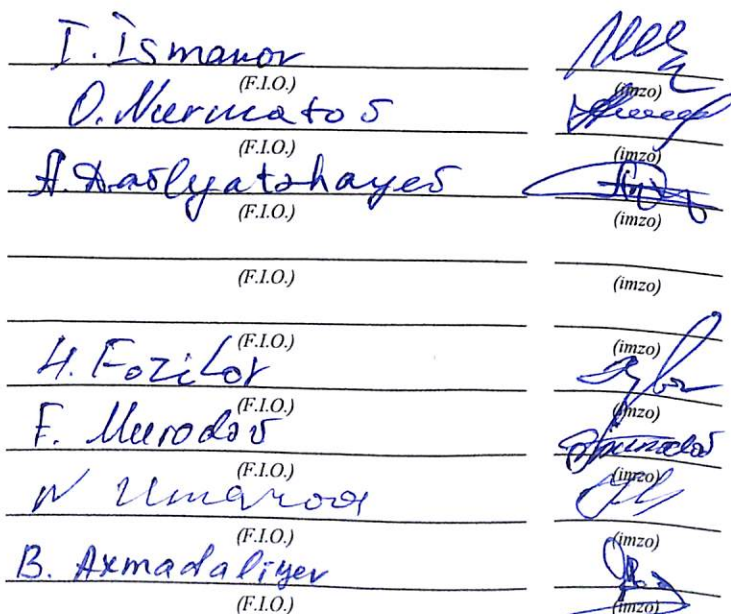 I. Ismanov
(F.I.O.) (imzo)
O. Nurmatov
(F.I.O.) (imzo)
A. Davlyatshayev
(F.I.O.) (imzo)
(F.I.O.) (imzo)
(F.I.O.) (imzo)
H. Fozilov
(F.I.O.) (imzo)
F. Murodov
(F.I.O.) (imzo)
N Umarova
(F.I.O.) (imzo)
B. Axmadaliyev
(F.I.O.) (imzo)